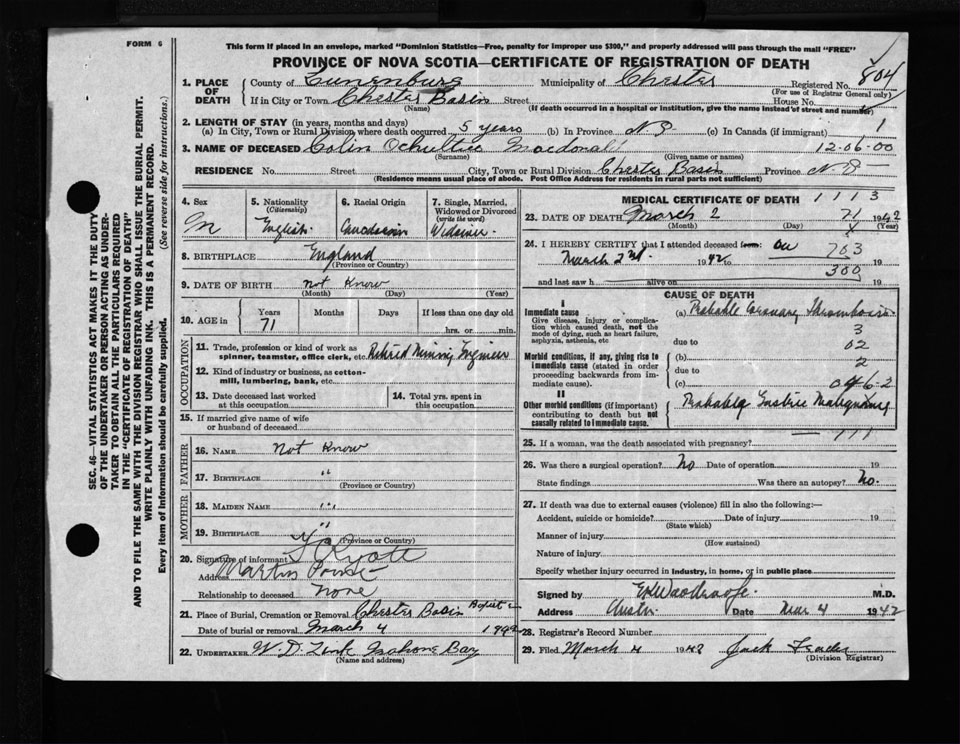 FORM 6
This form if placed in an envelope, marked "Dominion Statistics—Free, penalty for improper use $300," and properly addressed will pass through the mail "FREE"
PROVINCE OF NOVA SCOTIA—CERTIFICATE OF REGISTRATION OF DEATH
1. PLACE OF DEATH
County of Lunenburg Municipality of Chester Registered No. 804
(For use of Registrar General only)
If in City or Town Chester Basin Street House No.
(Name) (If death occurred in a hospital or institution, give the name instead of street and number)
2. LENGTH OF STAY (in years, months and days)
(a) In City, Town or Rural Division where death occurred 5 years (b) In Province N.S. (c) In Canada (if immigrant) 1
3. NAME OF DECEASED Colin Macdonald 12-06-00
(Surname) (Given name or names)
RESIDENCE No. Street City, Town or Rural Division Chester Basin Province N.S.
(Residence means usual place of abode. Post Office Address for residents in rural parts not sufficient)
4. Sex
M
5. Nationality (Citizenship)
English
6. Racial Origin
7. Single, Married, Widowed or Divorced (write the word)
Widower
8. BIRTHPLACE England
(Province or Country)
9. DATE OF BIRTH not Know
(Month) (Day) (Year)
10. AGE in Years Months Days If less than one day old
71 hrs. or min.
OCCUPATION
11. Trade, profession or kind of work as spinner, teamster, office clerk, etc. Retired Mining Engineer
12. Kind of industry or business, as cotton-mill, lumbering, bank, etc.
13. Date deceased last worked at this occupation
14. Total yrs. spent in this occupation
15. If married give name of wife or husband of deceased
FATHER
16. NAME Not Know
17. BIRTHPLACE "
(Province or Country)
MOTHER
18. MAIDEN NAME "
19. BIRTHPLACE "
(Province or Country)
20. Signature of informant
Address Martins Point
Relationship to deceased None
21. Place of Burial, Cremation or Removal Chester Basin Baptist
Date of burial or removal March 4 19
22. UNDERTAKER W. D. Zink Mahone Bay
(Name and address)
MEDICAL CERTIFICATE OF DEATH 1113
23. DATE OF DEATH March 2 71 1942
(Month) (Day) (Year)
24. I HEREBY CERTIFY that I attended deceased from: on 763
March 2nd 1942 to 19
300
and last saw h alive on 19
CAUSE OF DEATH
I
Immediate cause
Give disease, injury or complication which caused death, not the mode of dying, such as heart failure, asphyxia, asthenia, etc
(a) Probable Coronary Thrombosis
3
due to 02
Morbid conditions, if any, giving rise to immediate cause (stated in order proceeding backwards from immediate cause).
(b) 2
due to
(c) 6-2
II
Other morbid conditions (if important) contributing to death but not causally related to immediate cause.
Probable Gastric Malignancy
111
25. If a woman, was the death associated with pregnancy?
26. Was there a surgical operation? No Date of operation 19
State findings Was there an autopsy? No.
27. If death was due to external causes (violence) fill in also the following:—
Accident, suicide or homicide? Date of injury 19
(State which)
Manner of injury
(How sustained)
Nature of injury
Specify whether injury occurred in industry, in home, or in public place
Signed by M.D.
Address Chester Date Mar 4 1942
28. Registrar's Record Number
29. Filed March 4 1942 Jack
(Division Registrar)
SEC. 46—VITAL STATISTICS ACT MAKES IT THE DUTY
OF THE UNDERTAKER OR PERSON ACTING AS UNDER-
TAKER TO OBTAIN ALL THE PARTICULARS REQUIRED
IN THE "CERTIFICATE OF REGISTRATION OF DEATH"
AND TO FILE THE SAME WITH THE DIVISION REGISTRAR WHO SHALL ISSUE THE BURIAL PERMIT.
WRITE PLAINLY WITH UNFADING INK. THIS IS A PERMANENT RECORD.
Every item of information should be carefully supplied. (See reverse side for instructions.)